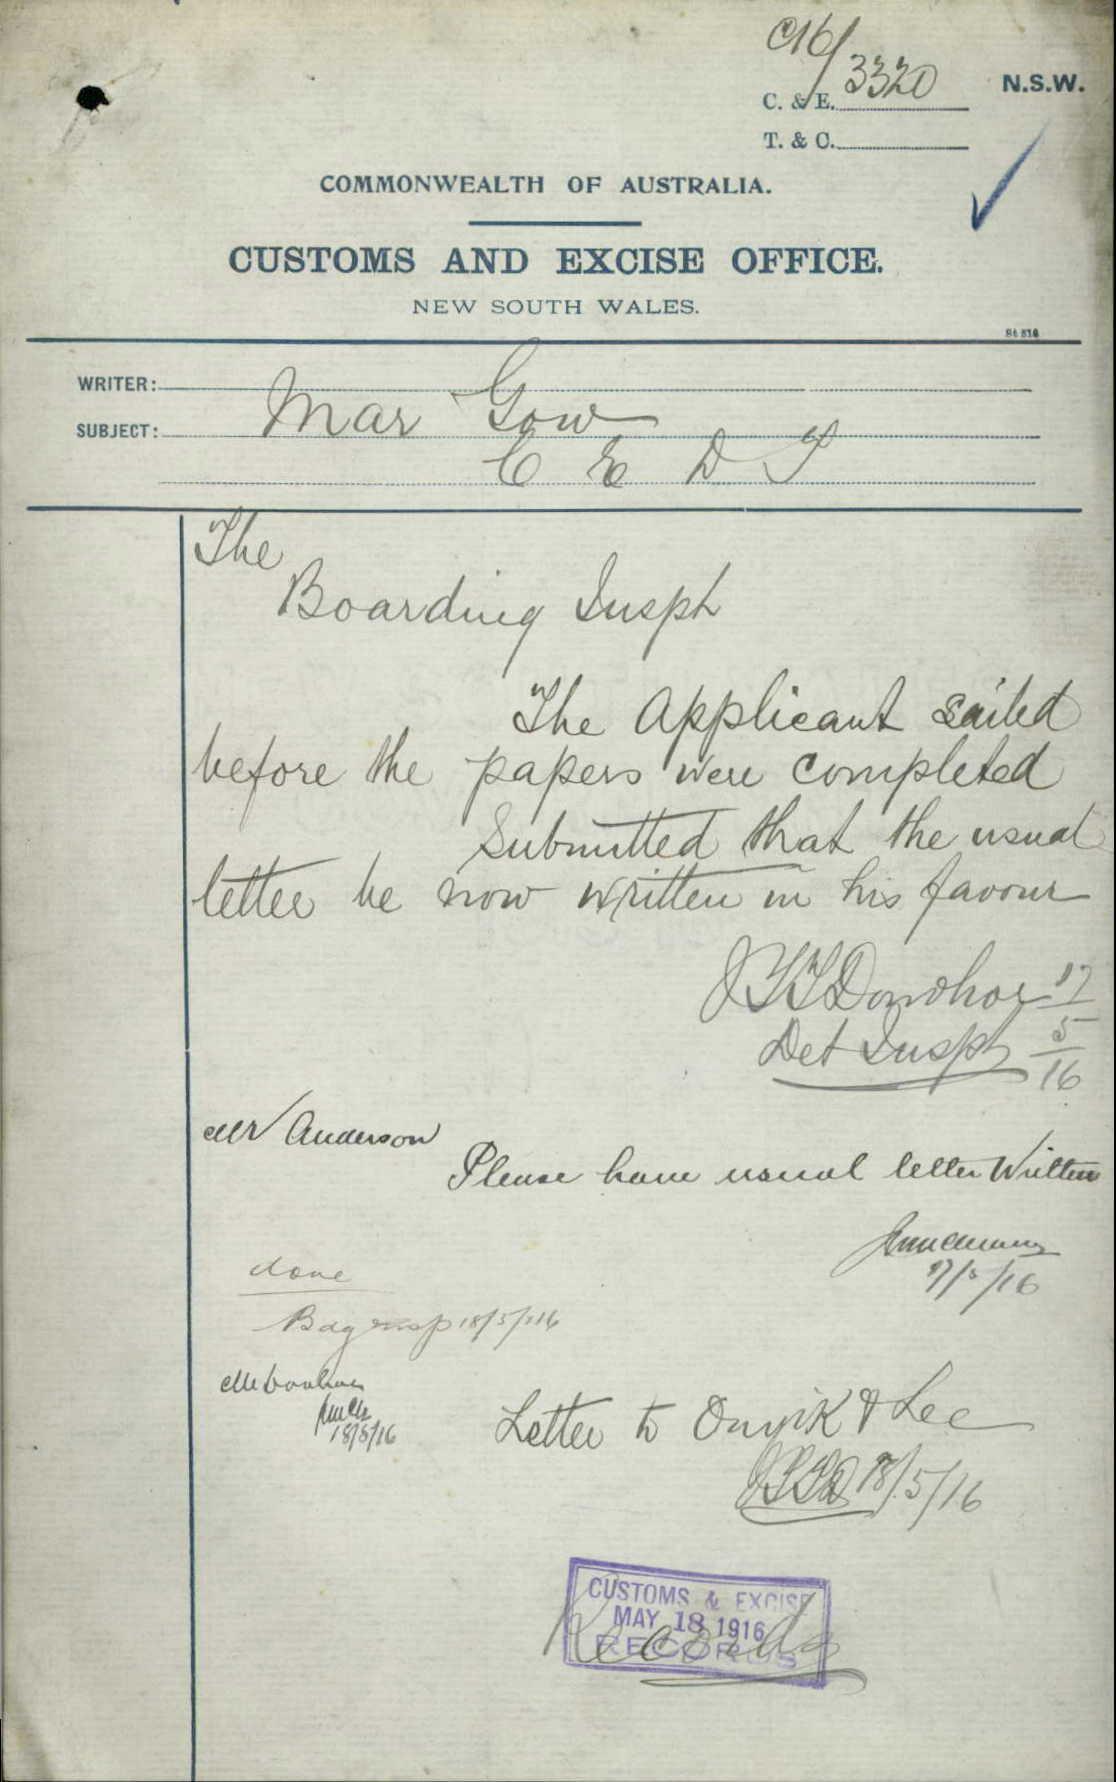 C16/3320
C. & E. N.S.W.
T. & C.
COMMONWEALTH OF AUSTRALIA.
CUSTOMS AND EXCISE OFFICE.
NEW SOUTH WALES.
WRITER:
SUBJECT: Mar Gow
C E D T
The
Boarding Inspr
The Applicant sailed
before the papers were completed
Submitted that the usual
letter be now written in his favour
JTTDonohoe 17/5/16
Det Inspr
Mr Anderson
Please have usual letter written
17/5/16
done
Bdg Insp 18/5/16
Mr Donohoe
18/5/16
Letter to & Lee
JTTD 18/5/16
CUSTOMS & EXCISE
MAY 18 1916
RECORDS
Records